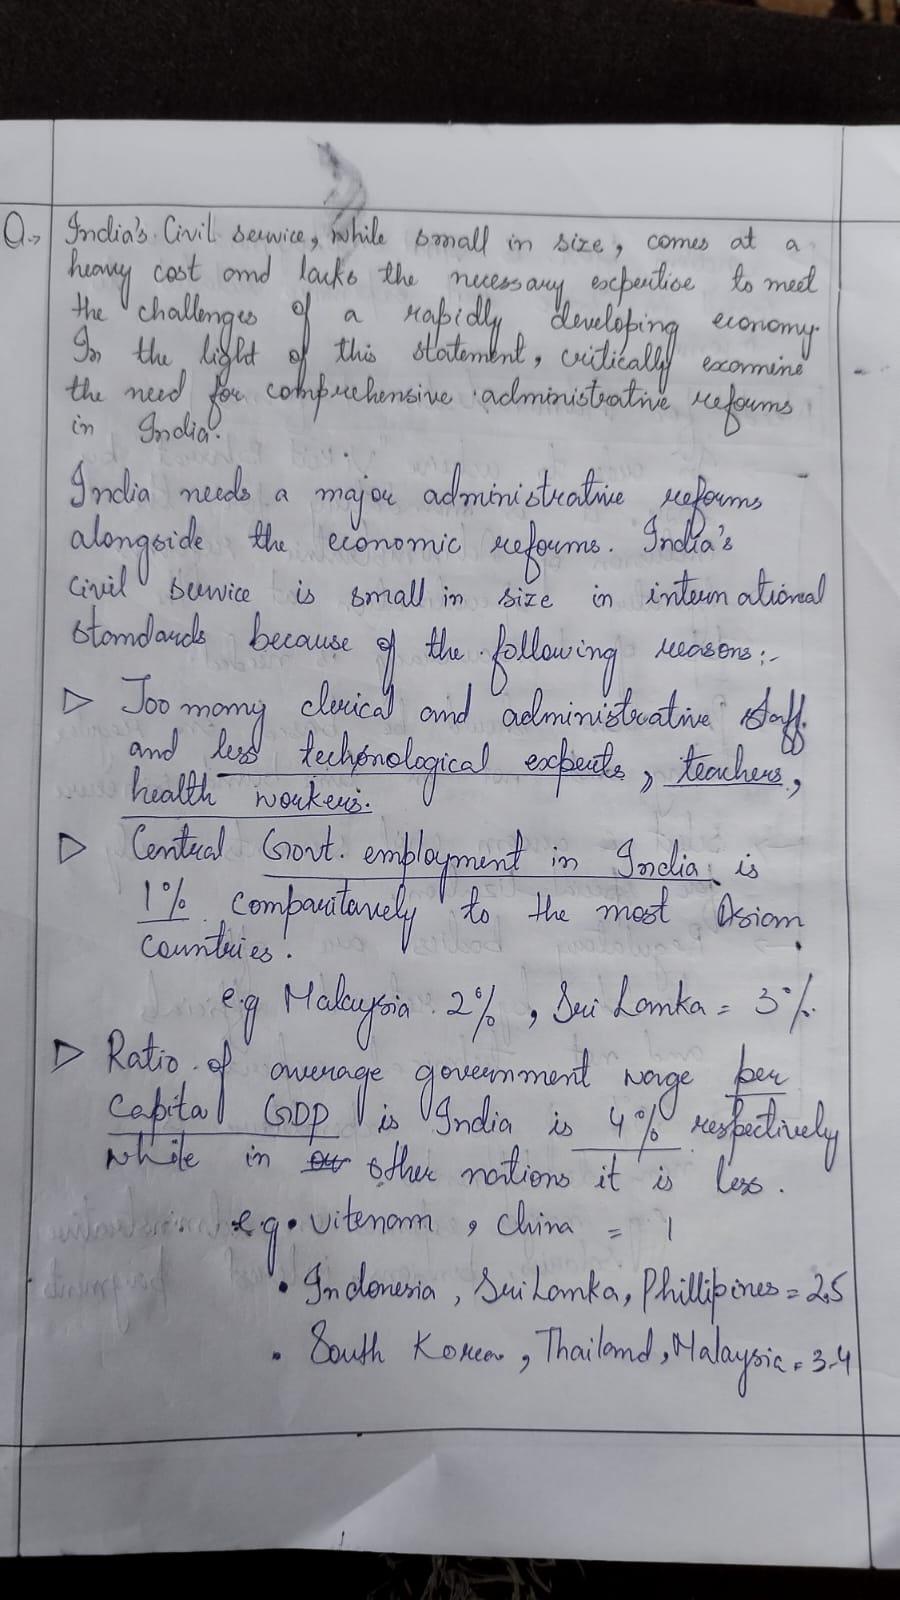 Q.→ India's Civil service, while small in size, comes at a
heavy cost and lacks the necessary expertise to meet
the challenges of a rapidly developing economy.
In the light of this statement, critically examine
the need for comprehensive administrative reforms
in India.
India needs a major administrative reforms
alongside the economic reforms. India's
Civil service is small in size in international
standards because of the following reasons:-
▷ Too many clerical and administrative staff
and less technological experts, teachers,
health workers.
▷ Central Govt. employment in India is
1% comparitavely to the most Asian
countries.
e.g Malaysia 2%, Sri Lanka = 3%.
▷ Ratio of average government wage per
Capital GDP is India is 4% respectively
while in other nations it is less.
e.g • Vitenam, China = 1
• Indonesia, Sri Lanka, Phillipines = 2.5
• South Korea, Thailand, Malaysia = 3-4